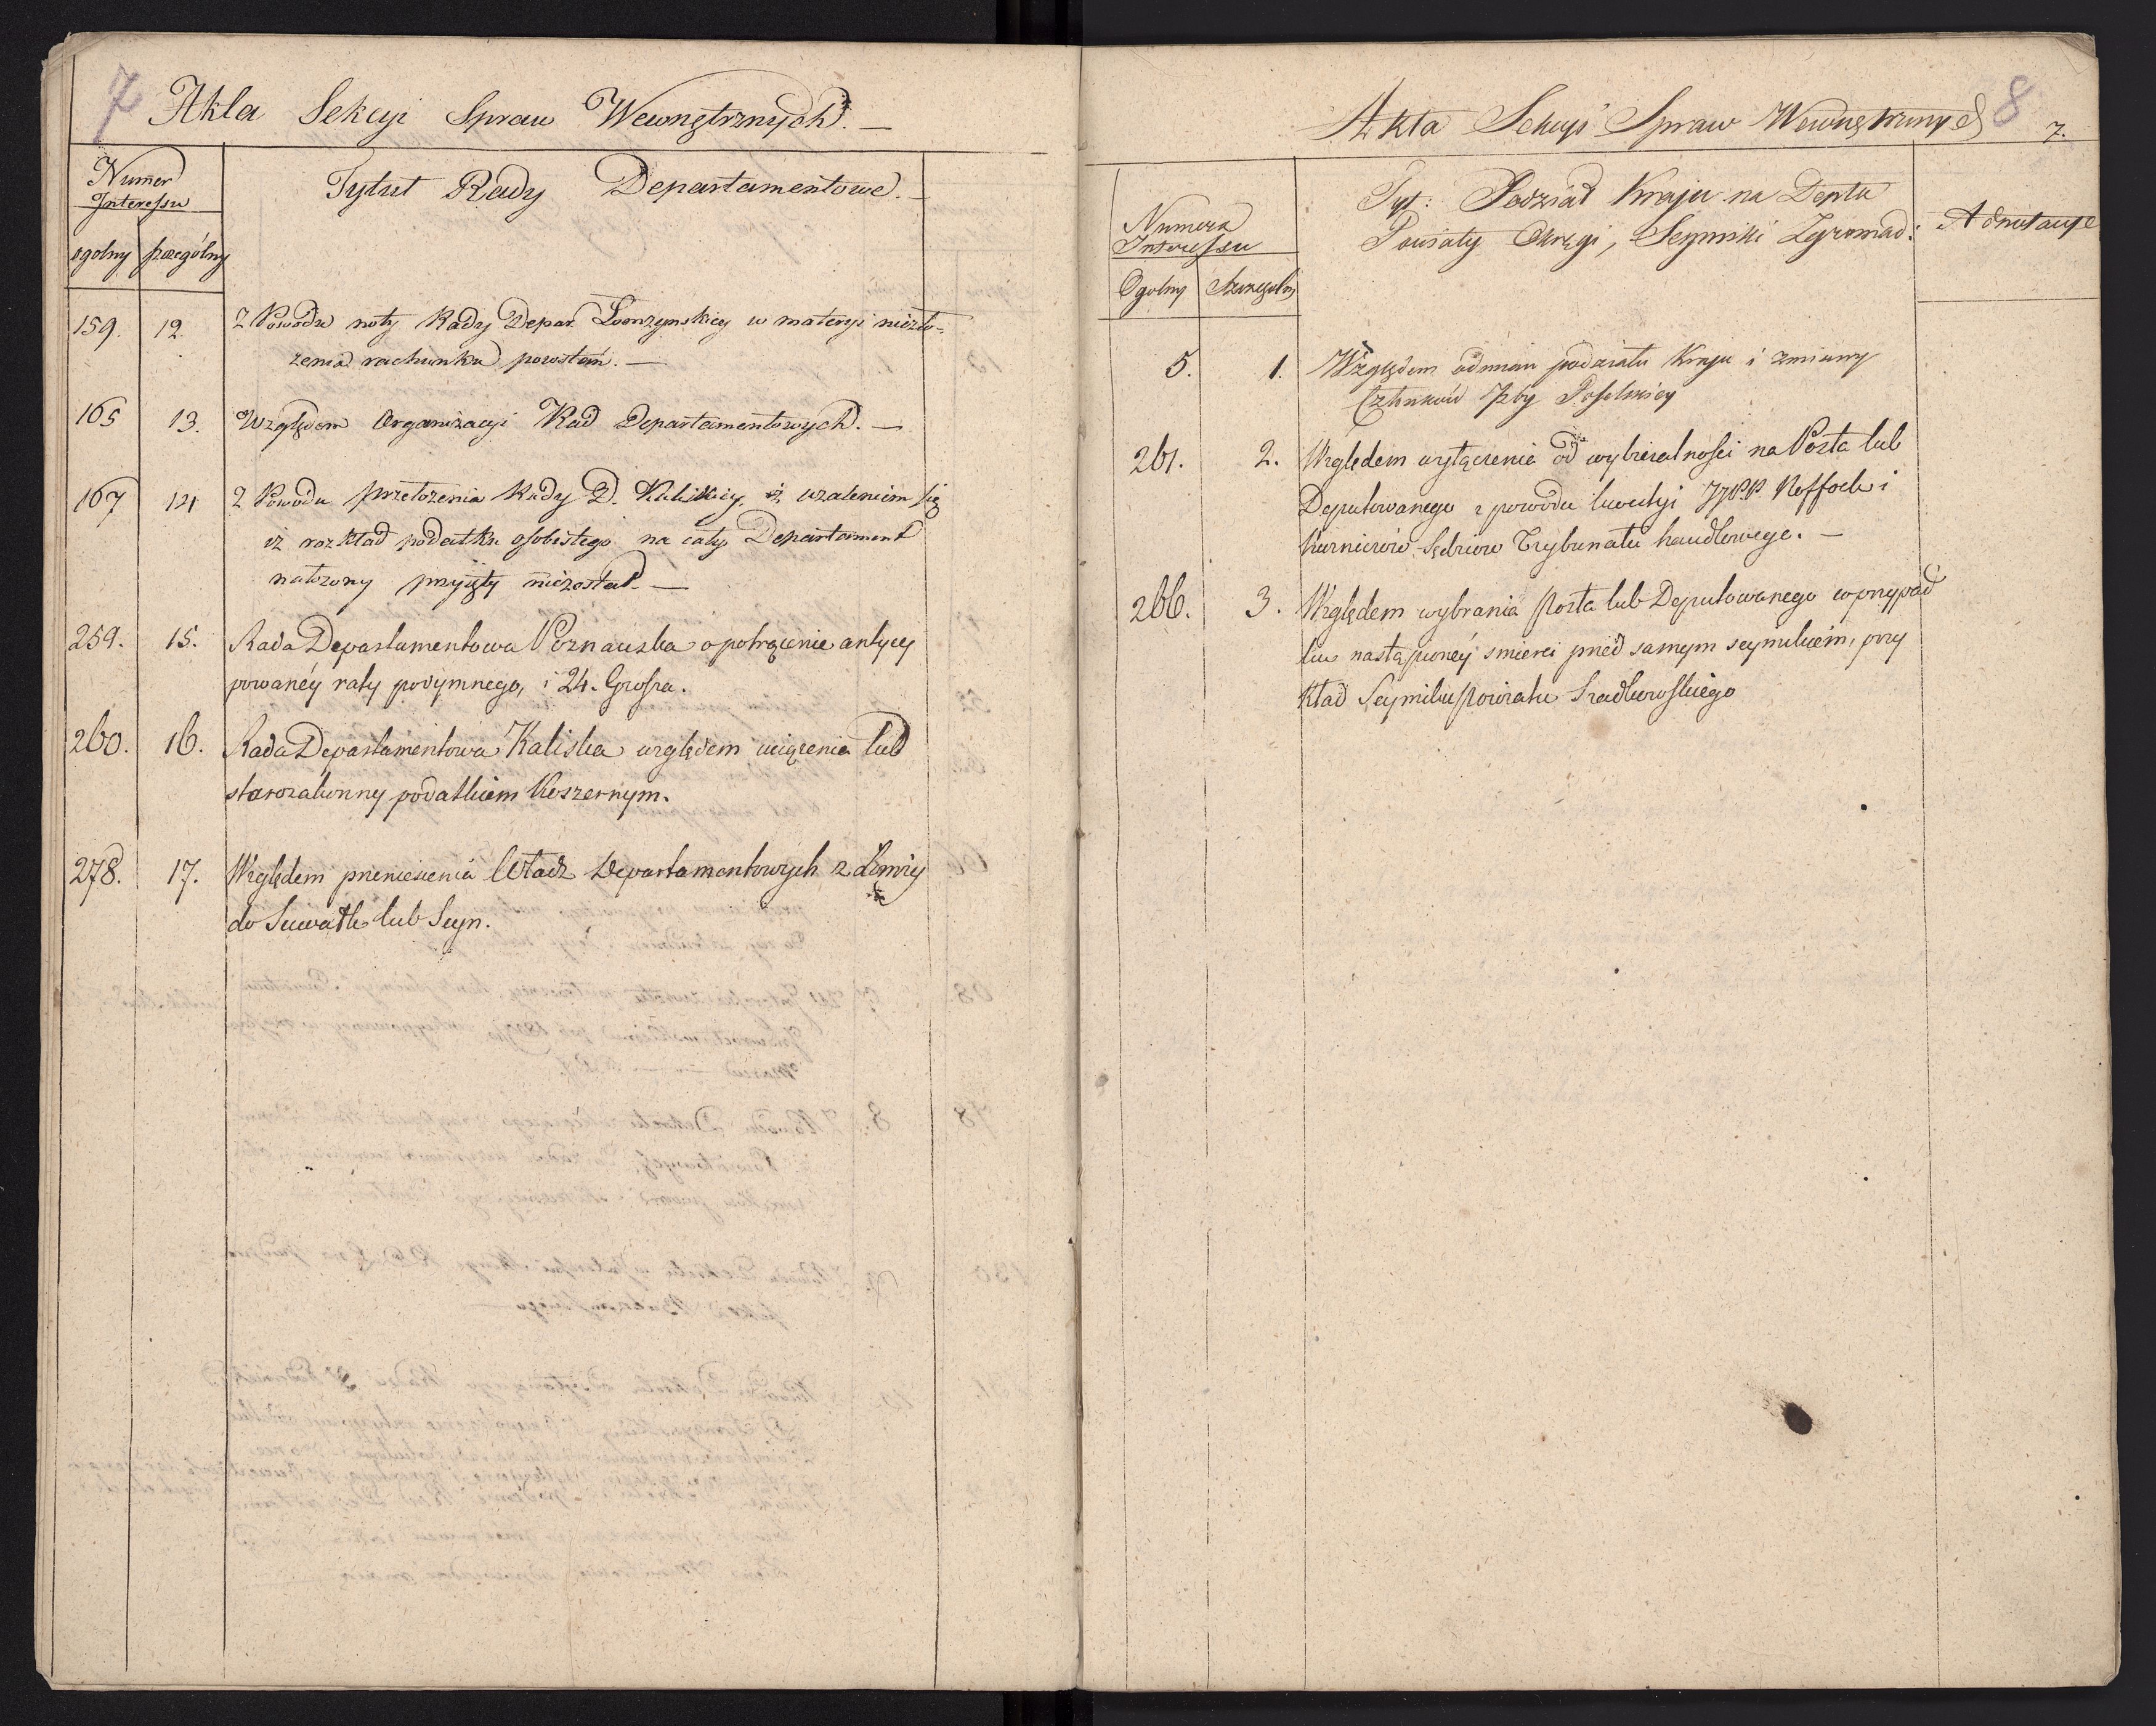 7
Akta Sekcyi Spraw Wewnętrznych. —
Numer
Interessu
ogolny szczególny
Tytuł Rady Departamentowe. —
159. 12. Z Powodu noty Rady Depar. Łomzynskiey w materyi niezło-
zenia rachunku powstań. —
165 13. Względem Organizacyi Rad Departamentowych. —
167 14 Z Powodu przełozenia Rady D. Kaliskiey, z uzaleniem się
iż rozkład podatku osobistego na cały Departament
nałozony przyięty niezostał. —
259. 15. Rada Departamentowa Poznańska o potrącenie antycy
powanéy raty podymnego, i 24. Grosza.
260. 16. Rada Departamentowa Kaliska względem uciążenia lud
starozakonny podatkiem Koszernym.
278. 17. Względem przeniesienia Władz Departamentowych z Łomży
do Suwałk lub Seyn.
Akta Sekcyi Spraw Wewnętrznych 8 7.
Numera
Interessu
Ogolny Szczegolny
Tyt: Podział Kraju na Depta
Powiaty Okręgi, Seymiki Zgromad:
Adnotacye
5. 1. Względem odmian podziału Kraju i zmiany
Członków Izby Poselskiey
261. 2. Względem wyłączenia od wybieralności na Posła lub
Deputowanego z powodu kwestyi JJPP. Noffock i
Kurnierów Sędziow Trybunału handlowego. —
266. 3. Względem wybrania Posła lub Deputowanego w przypad
ku nastąpionéy smierci przed samym seymikiém, przy
kład Seymiku Powiatu